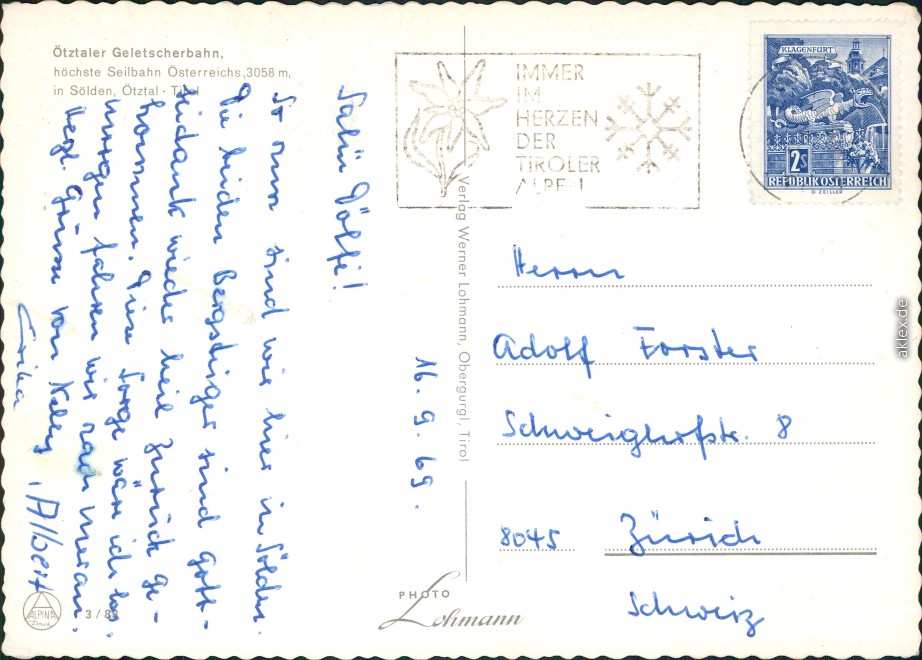 Ötztaler Geletscherbahn,
höchste Seilbahn Österreichs, 3058 m,
in Sölden, Ötztal - Tirol
Salü Dölfi!
So nun sind wir hier in Sölden.
Die beiden Bergsteiger sind gott-
seidank wieder heil zurück ge-
kommen. Diese Sorge wäre ich los.
Morgen fahren wir nach Meran.
Herzl. Grüsse von
Erika
, Albert
16. 9. 69.
Verlag Werner Lohmann, Obergurgl, Tirol
IMMER
IM
HERZEN
DER
TIROLER
ALPEN
KLAGENFURT
2S
REPUBLIK ÖSTERREICH
O. ZEILLER
Herrn
Adolf Forster
Schweighofstr. 8
8045 Zürich
Schweiz
ALPINA
Druck
3 / 88
PHOTO
Lohmann
aklex.de